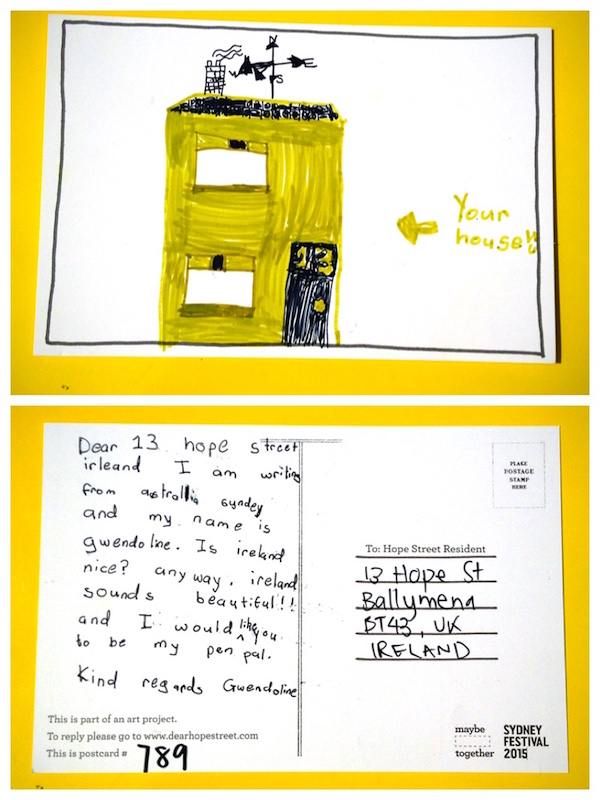 N
W E
S
13
Your
house!!
Dear 13 hope street
irleand I am writing
from astrallia syndey
and my name is
gwendoline. Is ireland
nice? any way, ireland
sounds beautiful!!
and I would like you
to be my pen pal.
Kind regards Gwendoline
This is part of an art project.
To reply please go to www.dearhopestreet.com
This is postcard # 789
PLACE
POSTAGE
STAMP
HERE
To: Hope Street Resident
13 Hope St
Ballymena
BT43, UK
IRELAND
maybe
together
SYDNEY
FESTIVAL
2015